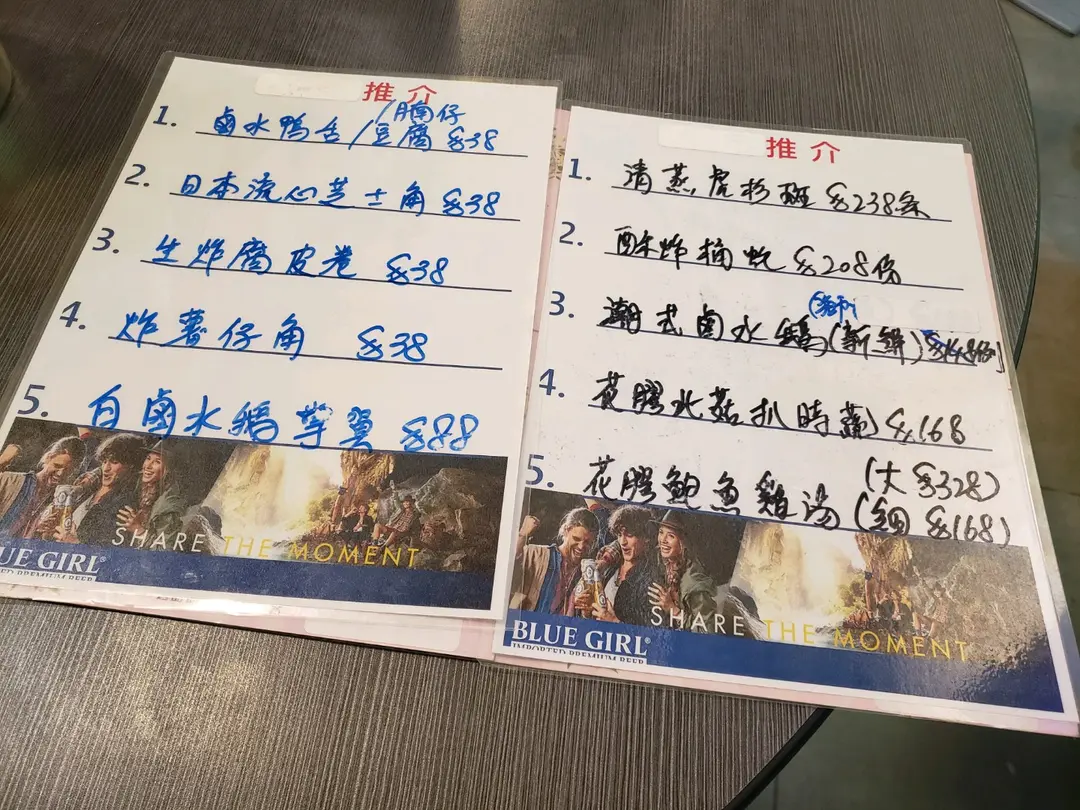 推介
/腩仔
1. 鹵水鴨舌/豆腐 $38
2. 日本流心芝士角 $38
3. 生炸腐皮卷 $38
4. 炸薯仔角 $38
5. 白鹵水鵝掌翼 $88
SHARE THE MOMENT
UE GIRL
IMPORTED PREMIUM BEER
推介
1. 清蒸虎杉斑 $238条
2. 酥炸桶蚝 $208份
3. 潮式鹵水鵝(新鮮) $148例
4. 花膠北菇扒時蔬 $168
5. 花膠鮑魚雞湯 (大 $328)
(細 $168)
SHARE THE MOMENT
BLUE GIRL®
IMPORTED PREMIUM BEER